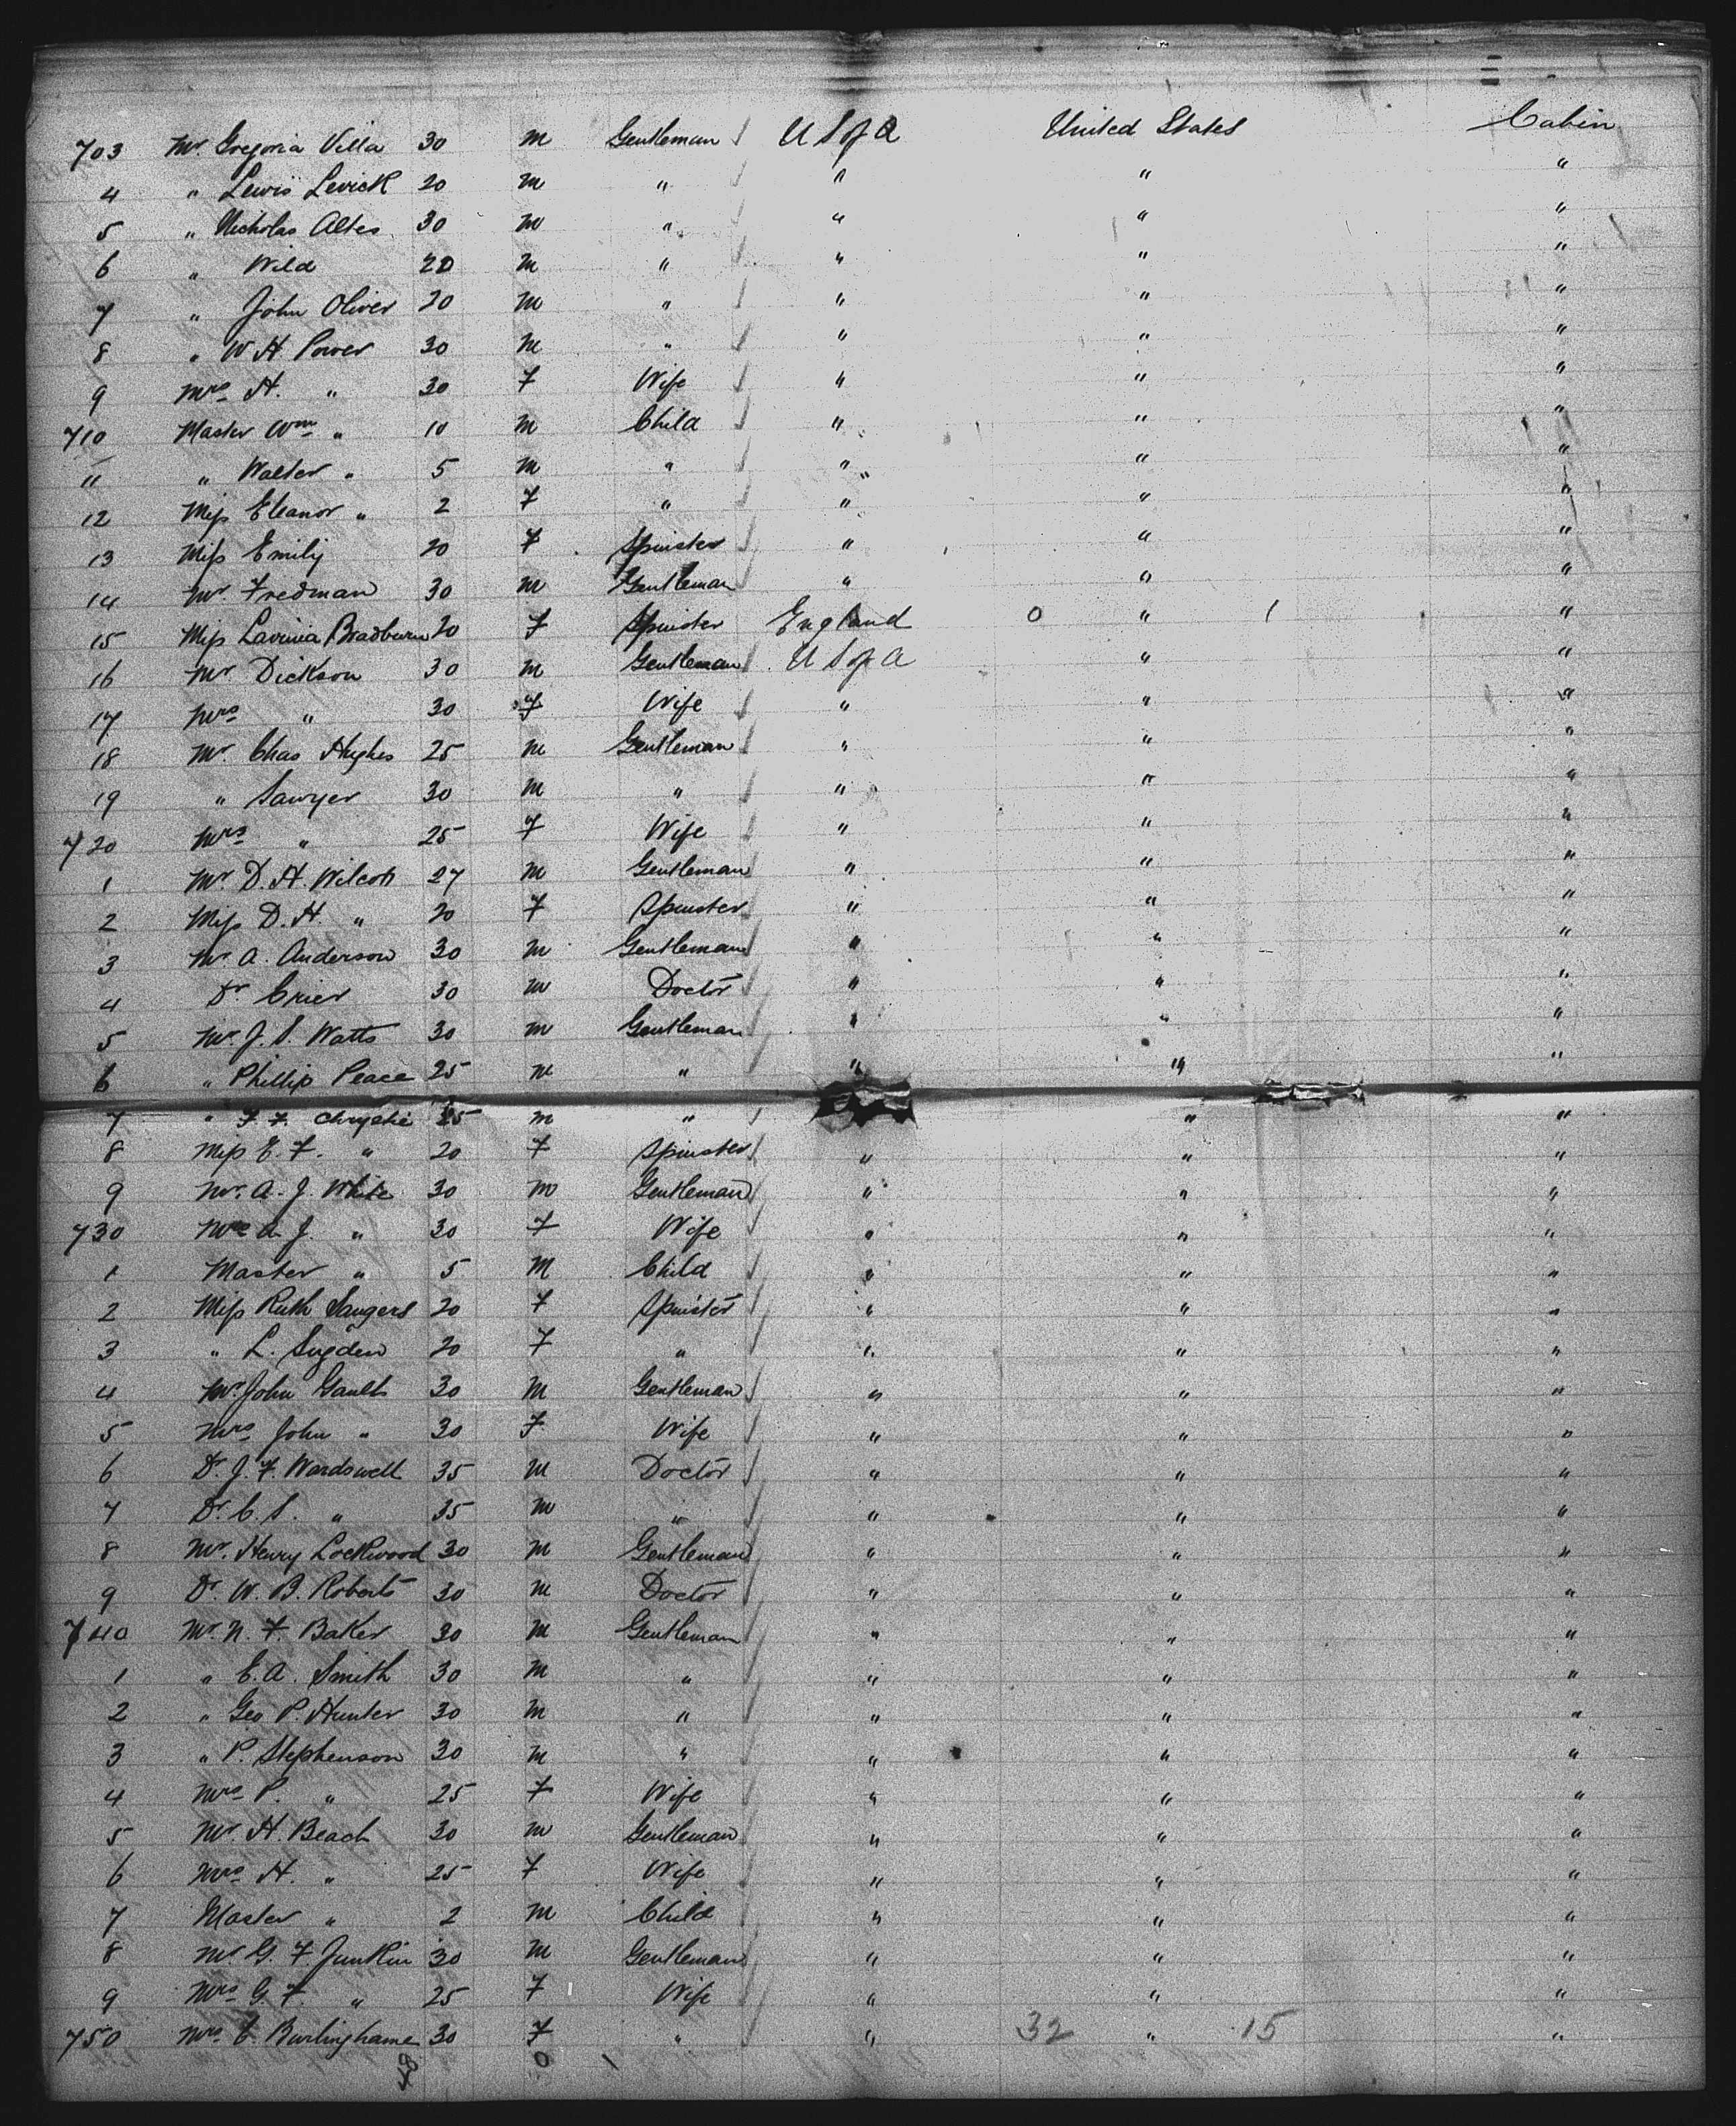 703 Mr. Gregoria Villa 30 m Gentleman U S of A United States Cabin
4 " Lewis Levick 20 m " " " "
5 " Nicholas Altes 30 m " " " "
6 " Wild 20 m " " " "
7 " John Oliver 20 m " " " "
8 " W H Power 30 m " " " "
9 Mrs H. " 30 F Wife " " "
710 Master Wm " 10 m Child " " "
11 " Walter " 5 m " " " "
12 Miss Eleanor " 2 F " " " "
13 Miss Emily 20 F Spinster " " "
14 Mr. Fredman 30 m Gentleman " " "
15 Miss Lavinia Bradburn 20 F Spinster England 0 " 1 "
16 Mr Dickson 30 m Gentleman U S of A " "
17 Mrs " 30 F Wife " " "
18 Mr. Chas Hughes 25 m Gentleman " " "
19 " Sawyer 30 m " " " "
720 Mrs " 25 F Wife " " "
1 Mr D. H. Wilcox 27 m Gentleman " " "
2 Miss D. H. " 20 F Spinster " " "
3 Mr. A. Anderson 30 m Gentleman " " "
4 Dr Crier 30 m Doctor " " "
5 Mr. J. S. Watts 30 m Gentleman " " "
6 " Phillip Peace 25 m " " " "
7 " F. F. Chrystie 25 m " " "
8 Miss E. F. " 20 F Spinster " " "
9 Mr. A. J. White 30 m Gentleman " " "
730 Mrs A. J. " 30 F Wife " " "
1 Master " 5 m Child " " "
2 Miss Ruth Saugers 20 F Spinster " " "
3 " L. Sugden 20 F " " " "
4 Mr. John Gault 30 m Gentleman " " "
5 Mrs John " 30 F Wife " " "
6 Dr. J. F. Wardswell 35 m Doctor " " "
7 Dr. C. S. " 35 m " " " "
8 Mr. Henry Lockwood 30 m Gentleman " " "
9 Dr W. B. Roberts 30 m Doctor " " "
740 Mr. N. F. Baker 30 m Gentleman " " "
1 " E. A. Smith 30 m " " " "
2 " Geo P. Hunter 30 m " " " "
3 " P. Stephenson 30 m " " " "
4 Mrs P. " 25 F Wife " " "
5 Mr. H. Beach 30 m Gentleman " " "
6 Mrs H. " 25 F Wife " " "
7 Master " 2 m Child " " "
8 Mr. G. F. Junkin 30 m Gentleman " " "
9 Mrs G. F. " 25 F Wife " " "
750 Mrs C. Burlinghame 30 F " " 32 " 15 "